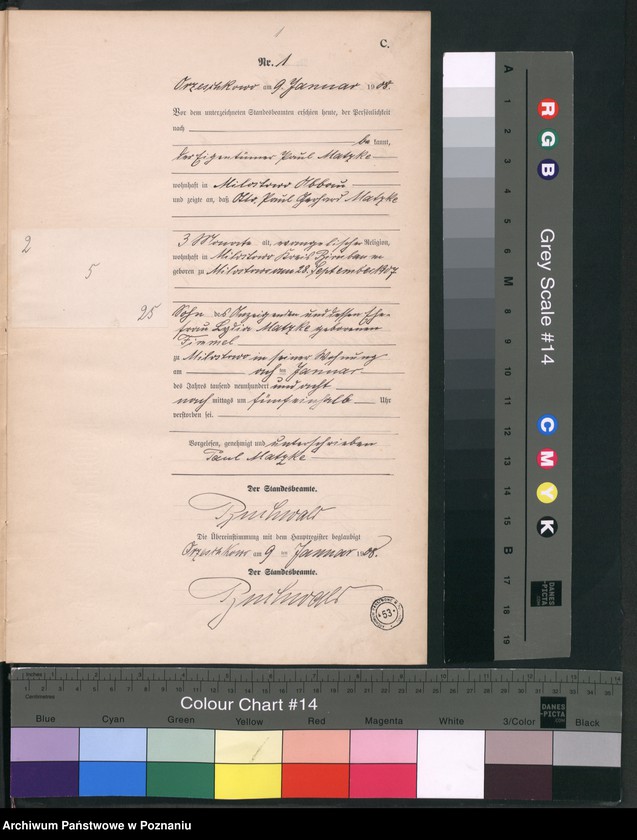 C.
Nr. 1
Orzeschkowo am 9 Januar 1908.
Vor dem unterzeichneten Standesbeamten erschien heute, der Persönlichkeit
nach
be kannt,
der Eigentümer Paul Matzke
wohnhaft in Milostowo Abbau
und zeigte an, daß Otto Paul Gerhard Matzke
2
3 Monate alt, evangelischer Religion,
wohnhaft in Milostowo Kreis Birnbaum
5
geboren zu Milostowo am 28. September 1907
25
Sohn des Anzeigenden und dessen Ehe-
frau Lydia Matzke geborenen
zu Milostowo in seiner Wohnung
am acht ten Januar
des Jahres tausend neunhundert und acht
nach mittags um fünf einhalb Uhr
verstorben sei.
Vorgelesen, genehmigt und unterschrieben
Paul Matzke
Der Standesbeamte.
Buchwald
Die Übereinstimmung mit dem Hauptregister beglaubigt
Orzeschkowo am 9 ten Januar 1908.
Der Standesbeamte.
Buchwald
63
A
1
2
3
4
5
6
M
8
9
10
11
12
13
14
15
B
17
18
19
R
G
B
Grey Scale #14
C
M
Y
K
DANES
PICTA
.COM
Inches
Centimetres
Colour Chart #14
DANES
-PICTA
.COM
Blue Cyan Green Yellow Red Magenta White 3/Color Black
Archiwum Państwowe w Poznaniu